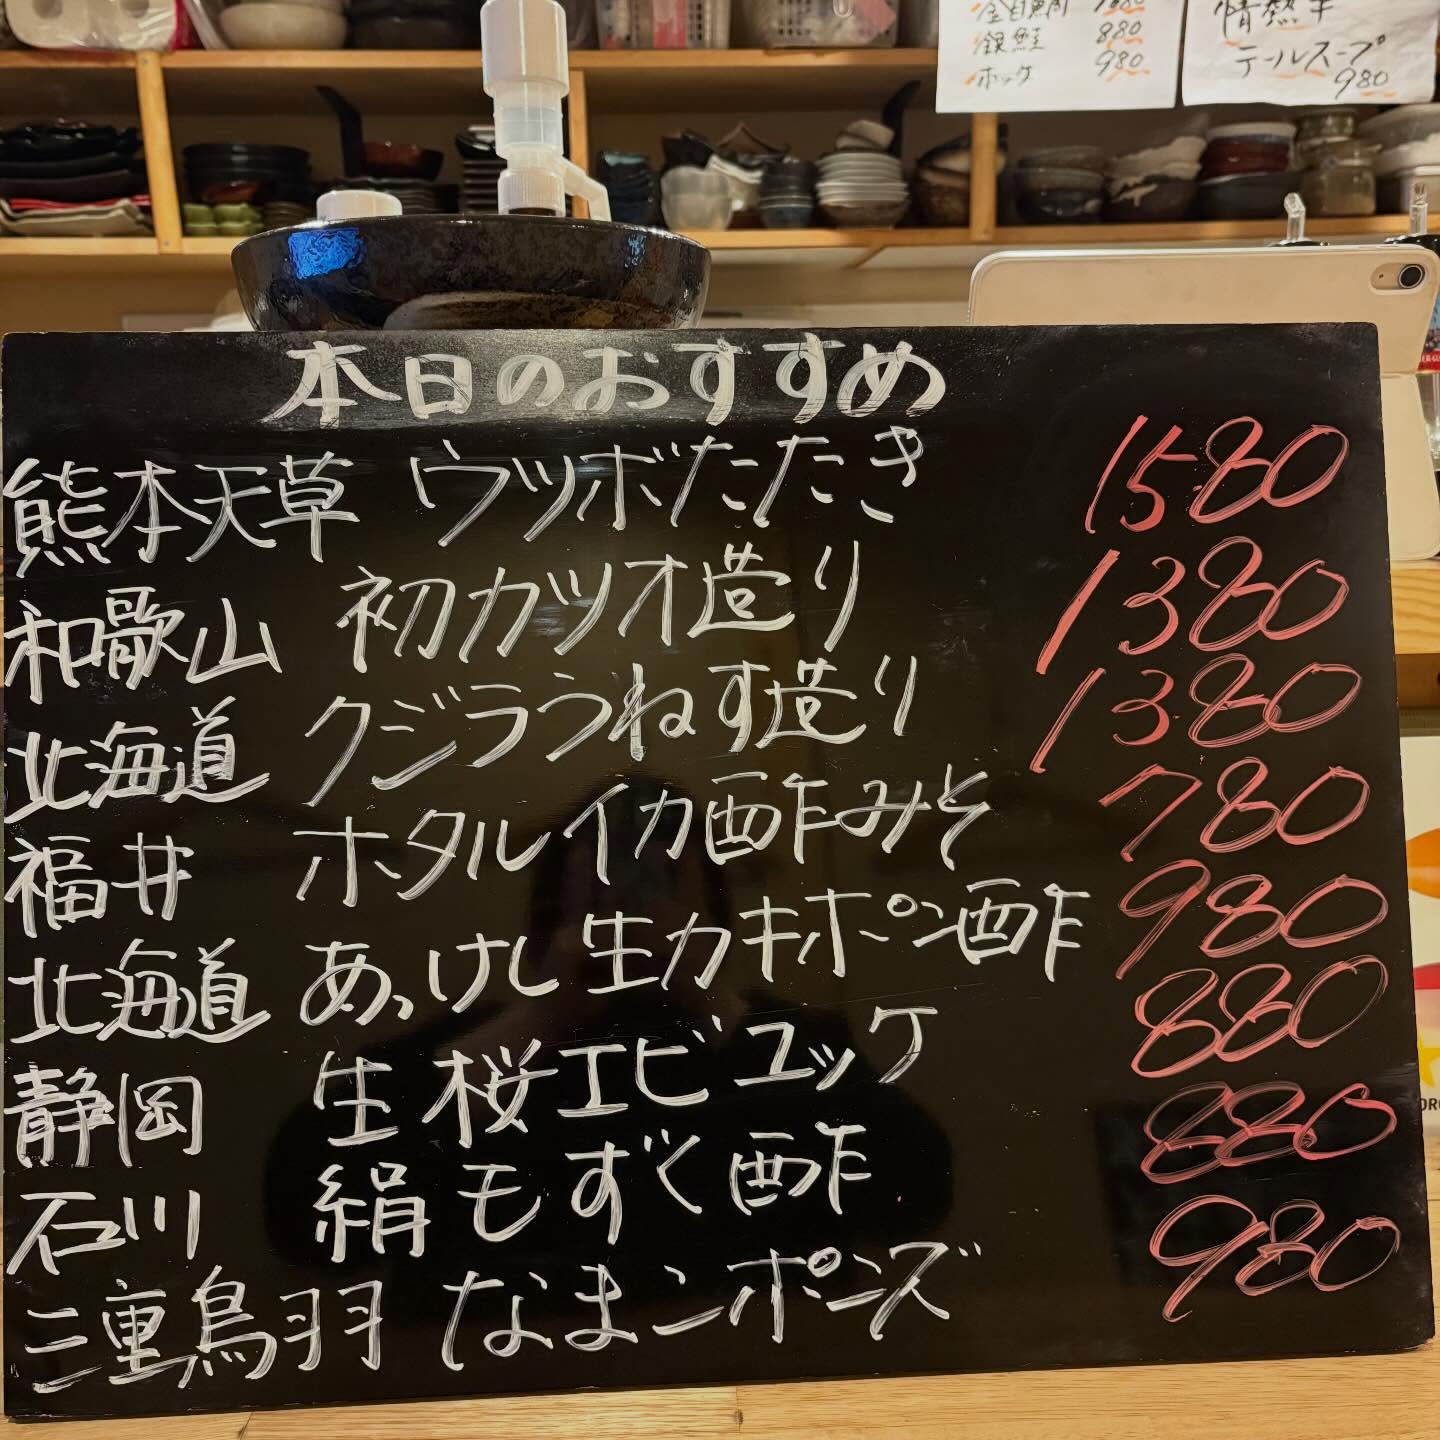 880
銀鮭 880
ホッケ 980
テールスープ
980
本日のおすすめ
熊本天草 ウツボたたき 1580
和歌山 初カツオ造り 1380
北海道 クジラうねす造り 1380
福井 ホタルイカ酢みそ 780
北海道 あっけし生カキポン酢 980
静岡 生桜エビユッケ 880
石川 絹もずく酢 880
三重鳥羽 なまこポンズ 980